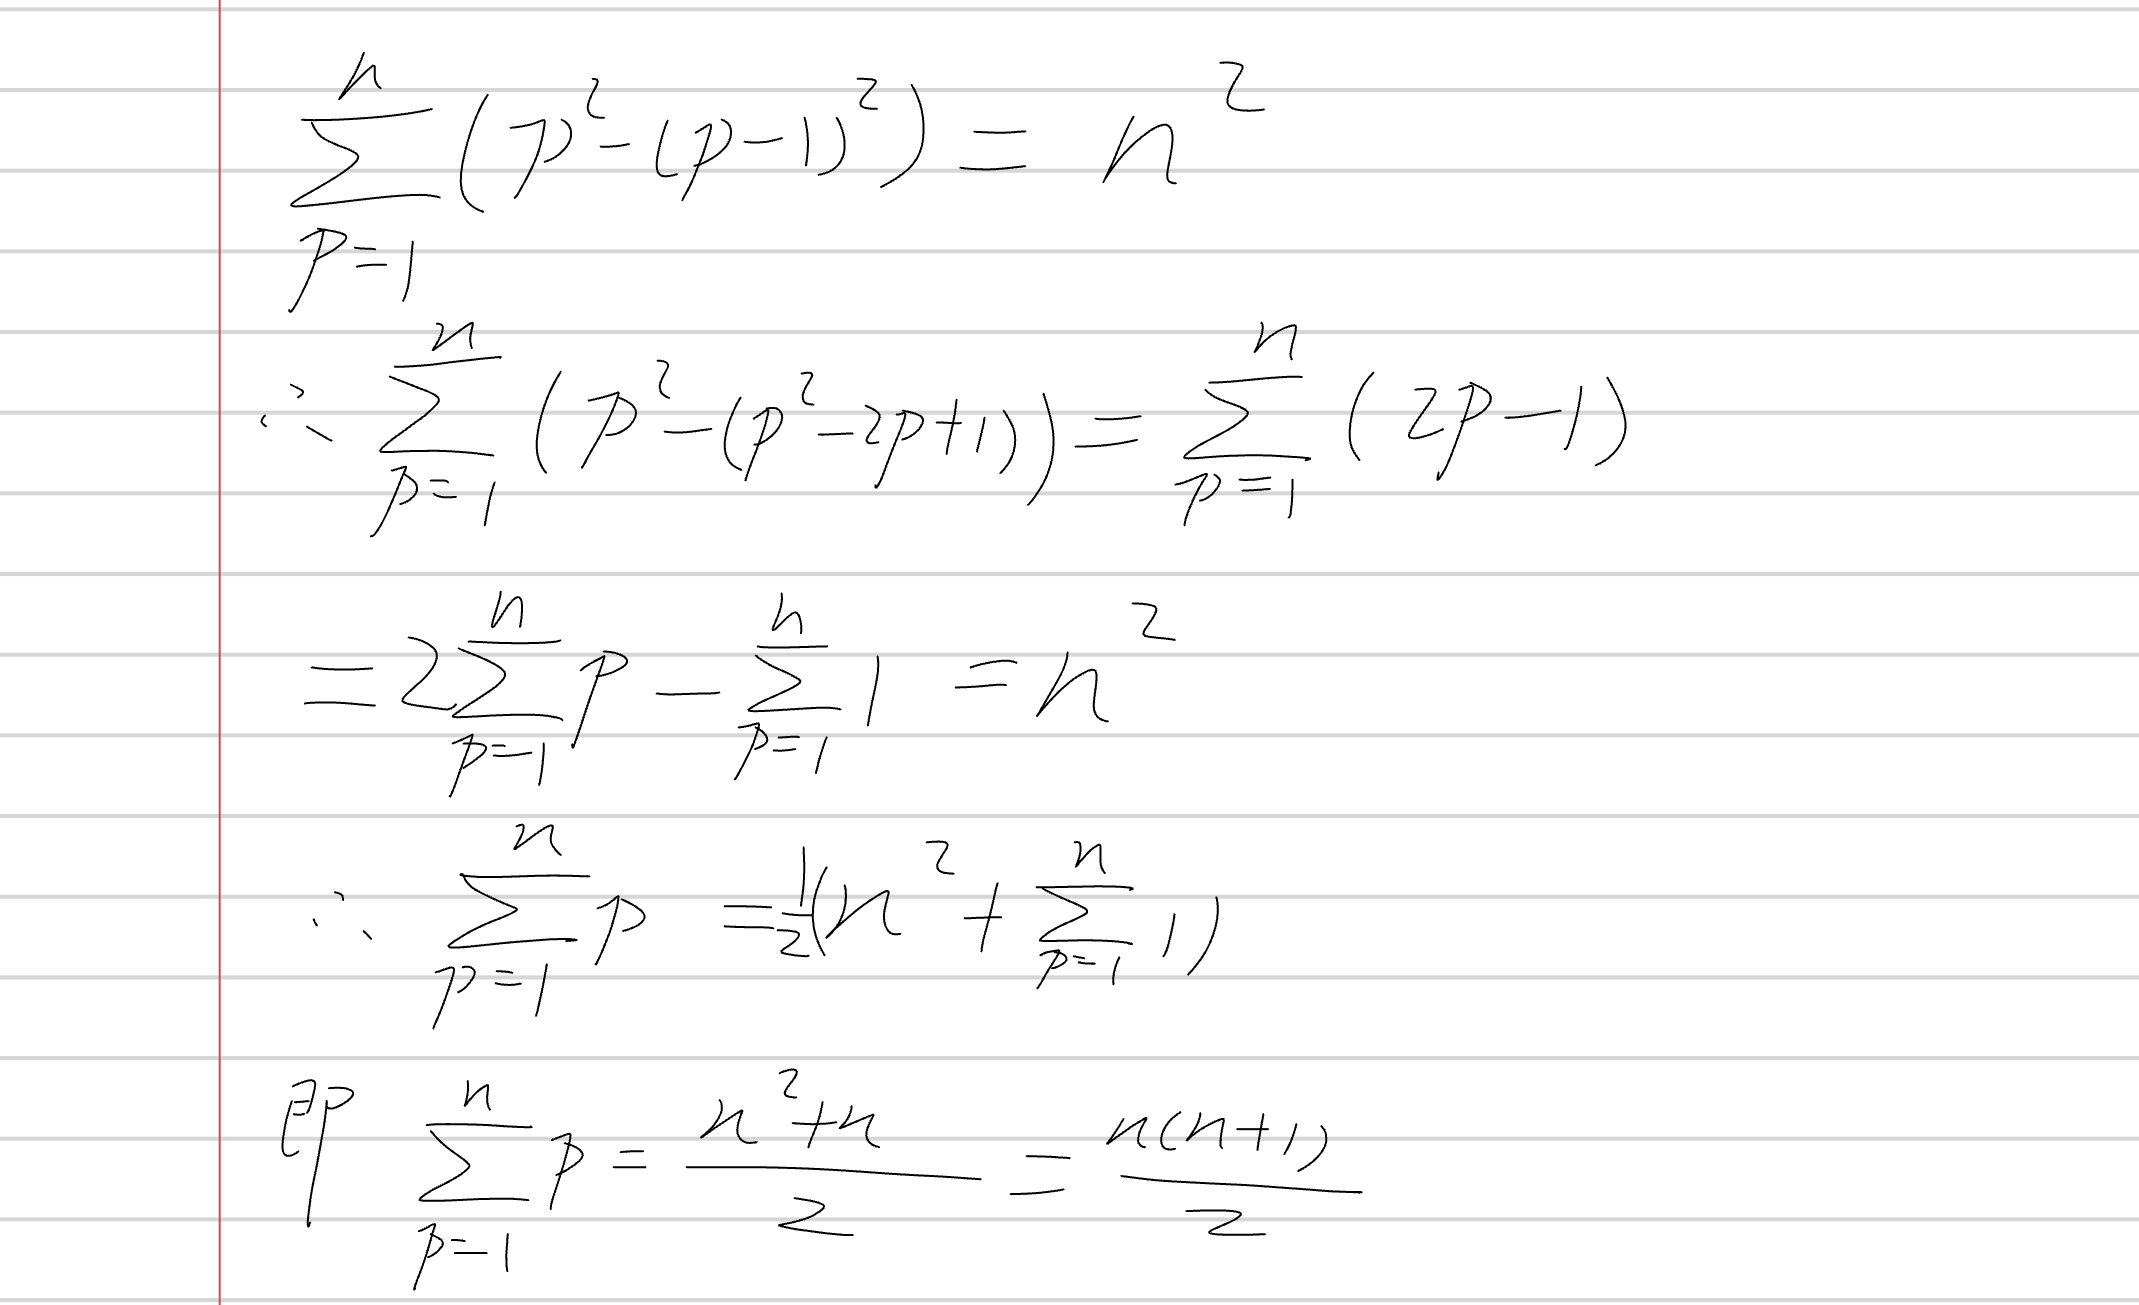 $\sum_{p=1}^{n} (p^2 - (p-1)^2) = n^2$
$\therefore \sum_{p=1}^{n} (p^2 - (p^2 - 2p + 1)) = \sum_{p=1}^{n} (2p - 1)$
$= 2\sum_{p=1}^{n} p - \sum_{p=1}^{n} 1 = n^2$
$\therefore \sum_{p=1}^{n} p = \frac{1}{2}(n^2 + \sum_{p=1}^{n} 1)$
即 $\sum_{p=1}^{n} p = \frac{n^2+n}{2} = \frac{n(n+1)}{2}$